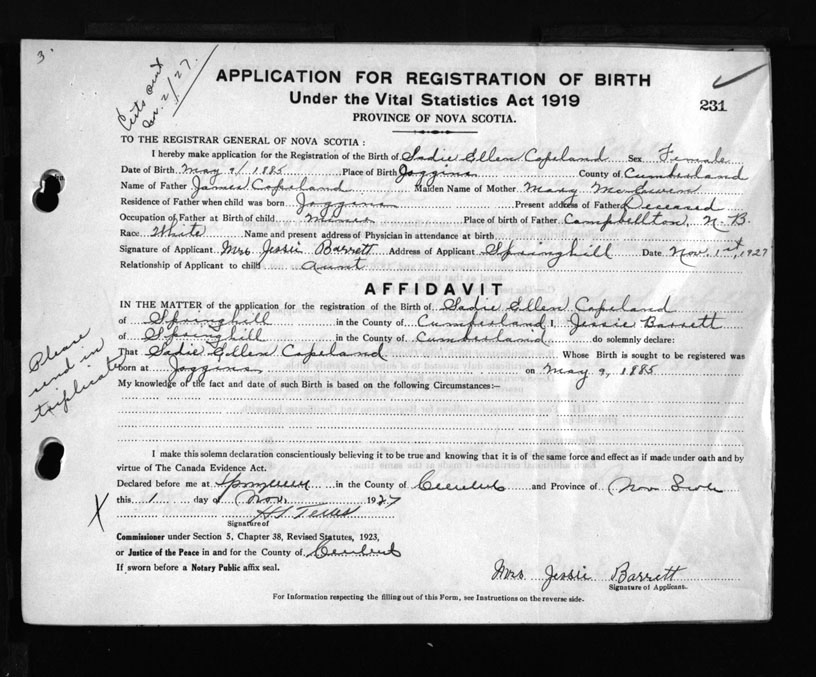 3.
APPLICATION FOR REGISTRATION OF BIRTH
Under the Vital Statistics Act 1919
231
PROVINCE OF NOVA SCOTIA.
TO THE REGISTRAR GENERAL OF NOVA SCOTIA:
I hereby make application for the Registration of the Birth of Sadie Ellen Copeland Sex Female
Date of Birth May 9/1885 Place of Birth Joggins County of Cumberland
Name of Father James Copeland Maiden Name of Mother Mary
Residence of Father when child was born Joggins Present address of Father Deceased
Occupation of Father at Birth of child Miner Place of birth of Father Campbellton, N.B.
Race White Name and present address of Physician in attendance at birth
Signature of Applicant Mrs Jessie Barrett Address of Applicant Springhill Date Nov. 1st, 1927
Relationship of Applicant to child Aunt
AFFIDAVIT
IN THE MATTER of the application for the registration of the Birth of Sadie Ellen Copeland
of Springhill in the County of Cumberland I, Jessie Barrett
of Springhill in the County of Cumberland do solemnly declare:
That Sadie Ellen Copeland Whose Birth is sought to be registered was
born at Joggins on May 9, 1885
Please send in triplicate
My knowledge of the fact and date of such Birth is based on the following Circumstances:-
I make this solemn declaration conscientiously believing it to be true and knowing that it is of the same force and effect as if made under oath and by
virtue of The Canada Evidence Act.
Declared before me at Springhill in the County of and Province of
this 1 day of Nov. 1927
Signature of
Commissioner under Section 5, Chapter 38, Revised Statutes, 1923,
or Justice of the Peace in and for the County of
If sworn before a Notary Public affix seal.
Mrs Jessie Barrett
Signature of Applicant.
For Information respecting the filling out of this Form, see Instructions on the reverse side.